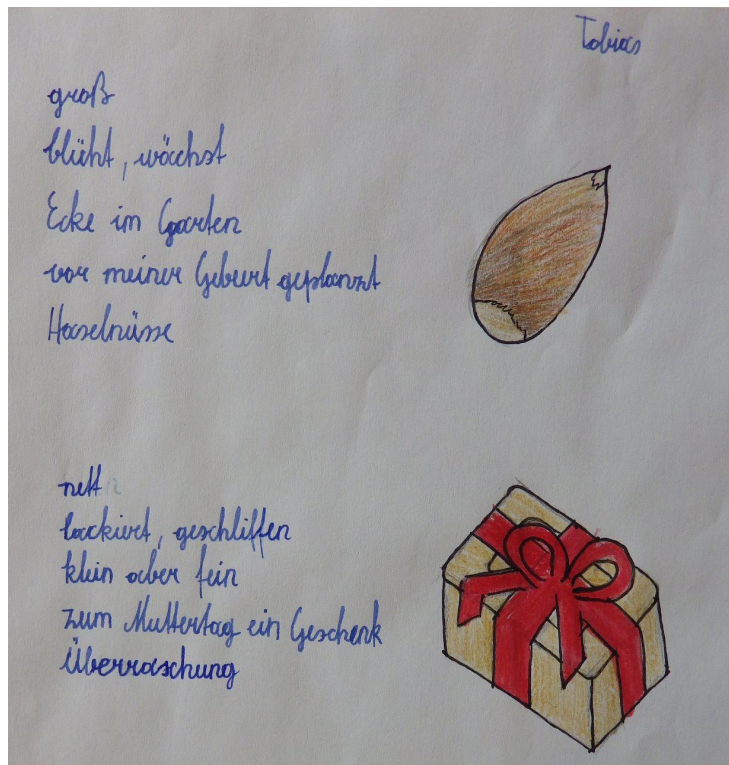 Tobias
groß
blüht, wächst
Ecke im Garten
vor meiner Geburt geplanzt
Haselnüsse
nett
lackiert, geschliffen
klein aber fein
zum Muttertag ein Geschenk
Überraschung